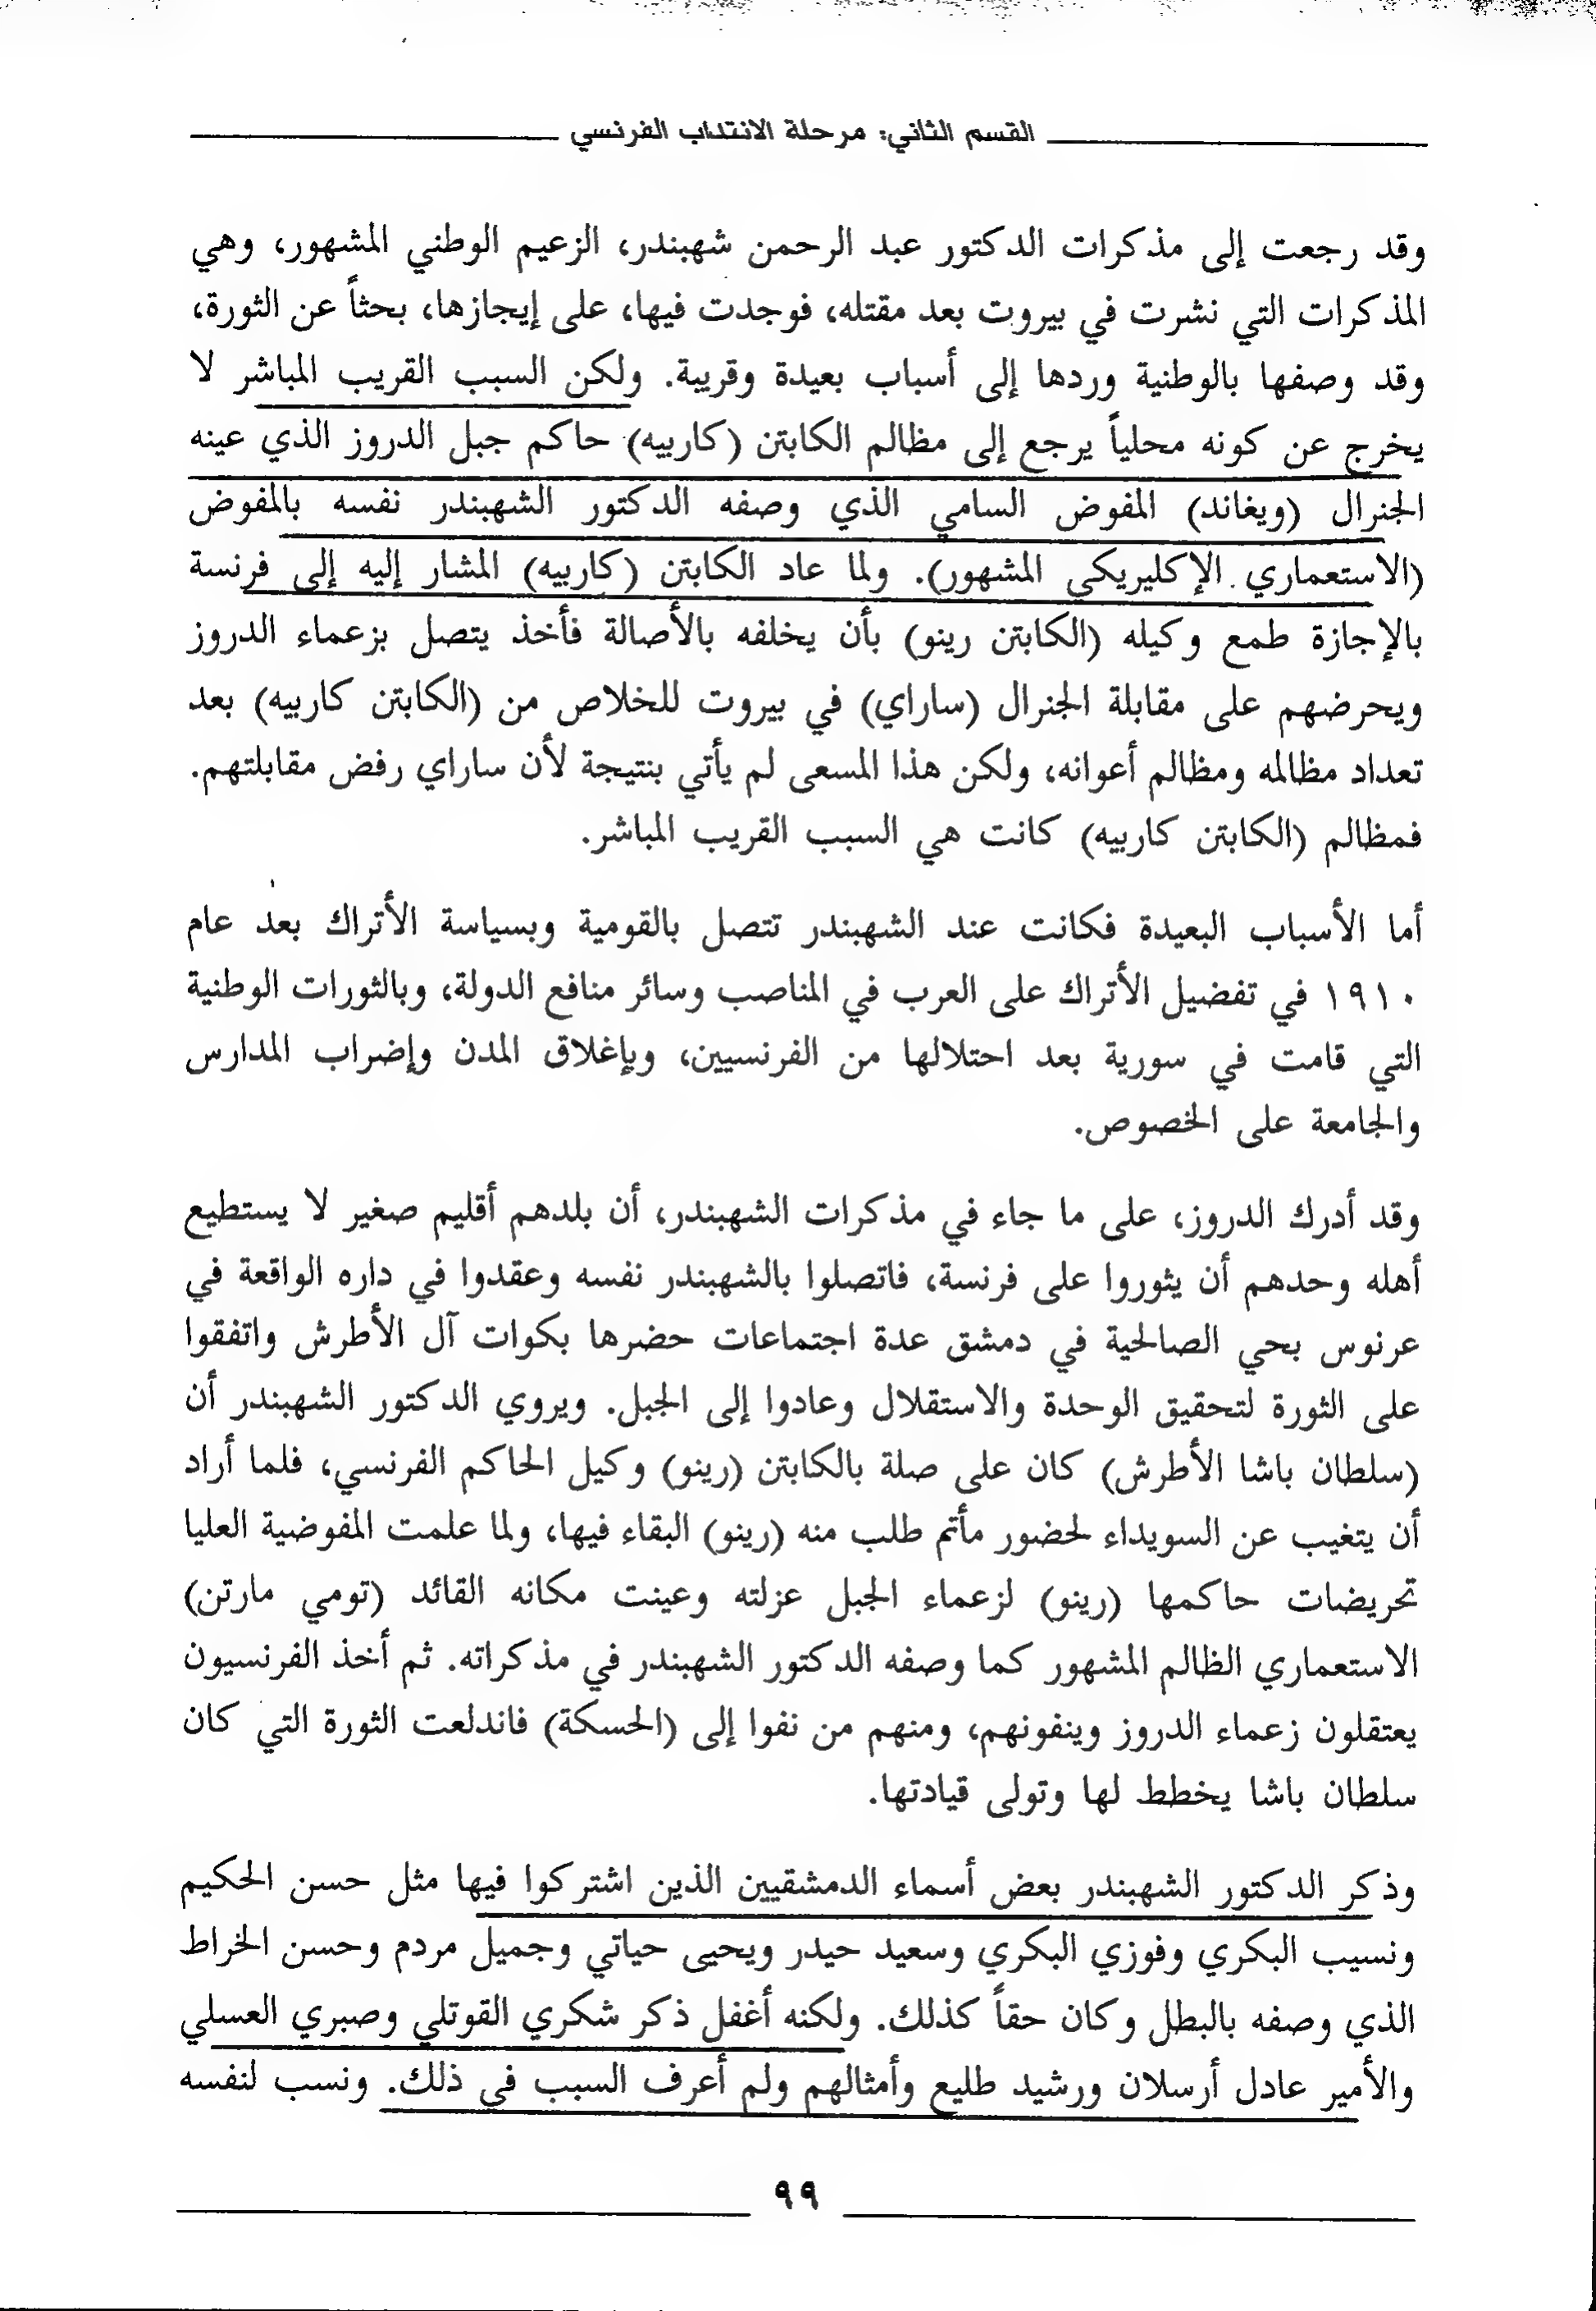 القسم الثاني: مرحلة الانتداب الفرنسي
وقد رجعت إلى مذكرات الدكتور عبد الرحمن شهبندر، الزعيم الوطني المشهور، وهي
المذكرات التي نشرت في بيروت بعد مقتله، فوجدت فيها، على إيجازها، بحثاً عن الثورة،
وقد وصفها بالوطنية وردها إلى أسباب بعيدة وقريبة. ولكن السبب القريب المباشر لا
يخرج عن كونه محلياً يرجع إلى مظالم الكابتن (كاربيه) حاكم جبل الدروز الذي عينه
الجنرال (ويغاند) المفوض السامي الذي وصفه الدكتور الشهبندر نفسه بالمفوض
(الاستعماري الإكليريكي المشهور). ولما عاد الكابتن (كاربيه) المشار إليه إلى فرنسة
بالإجازة طمع وكيله (الكابتن رينو) بأن يخلفه بالأصالة فأخذ يتصل بزعماء الدروز
ويحرضهم على مقابلة الجنرال (ساراي) في بيروت للخلاص من (الكابتن كاربيه) بعد
تعداد مظالمه ومظالم أعوانه، ولكن هذا المسعى لم يأتي بنتيجة لأن ساراي رفض مقابلتهم.
فمظالم (الكابتن كاربيه) كانت هي السبب القريب المباشر.
أما الأسباب البعيدة فكانت عند الشهبندر تتصل بالقومية وبسياسة الأتراك بعد عام
١٩١٠ في تفضيل الأتراك على العرب في المناصب وسائر منافع الدولة، وبالثورات الوطنية
التي قامت في سورية بعد احتلالها من الفرنسيين، وبإغلاق المدن وإضراب المدارس
والجامعة على الخصوص.
وقد أدرك الدروز، على ما جاء في مذكرات الشهبندر، أن بلدهم أقليم صغير لا يستطيع
أهله وحدهم أن يثوروا على فرنسة، فاتصلوا بالشهبندر نفسه وعقدوا في داره الواقعة في
عرنوس بحي الصالحية في دمشق عدة اجتماعات حضرها بكوات آل الأطرش واتفقوا
على الثورة لتحقيق الوحدة والاستقلال وعادوا إلى الجبل. ويروي الدكتور الشهبندر أن
(سلطان باشا الأطرش) كان على صلة بالكابتن (رينو) وكيل الحاكم الفرنسي، فلما أراد
أن يتغيب عن السويداء لحضور مأتم طلب منه (رينو) البقاء فيها، ولما علمت المفوضية العليا
تحريضات حاكمها (رينو) لزعماء الجبل عزلته وعينت مكانه القائد (تومي مارتن)
الاستعماري الظالم المشهور كما وصفه الدكتور الشهبندر في مذكراته. ثم أخذ الفرنسيون
يعتقلون زعماء الدروز وينفونهم، ومنهم من نفوا إلى (الحسكة) فاندلعت الثورة التي كان
سلطان باشا يخطط لها وتولى قيادتها.
وذكر الدكتور الشهبندر بعض أسماء الدمشقيين الذين اشتركوا فيها مثل حسن الحكيم
ونسيب البكري وفوزي البكري وسعيد حيدر ويحيى حياتي وجميل مردم وحسن الخراط
الذي وصفه بالبطل وكان حقاً كذلك. ولكنه أغفل ذكر شكري القوتلي وصبري العسلي
والأمير عادل أرسلان ورشيد طليع وأمثالهم ولم أعرف السبب في ذلك. ونسب لنفسه
٩٩